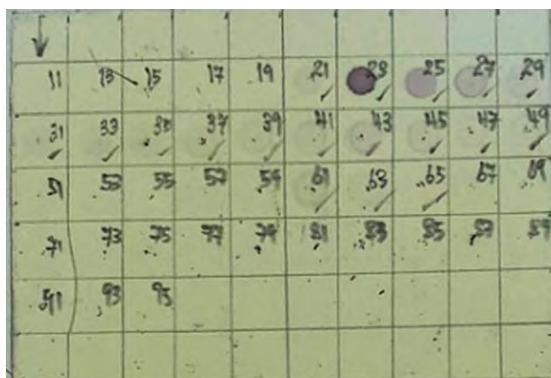 11 13 15 17 19 21 23 25 27 29
31 33 35 37 39 41 43 45 47 49
51 53 55 57 59 61 63 65 67 69
71 73 75 77 79 81 83 85 87 89
91 93 95